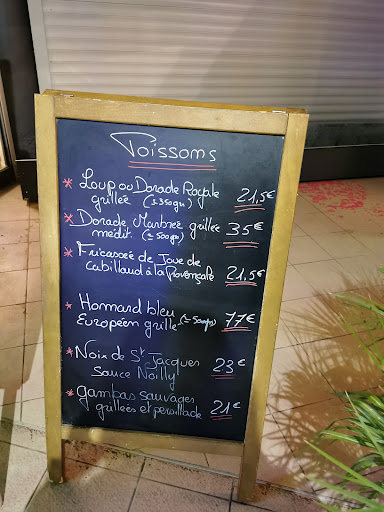 Poissons
* Loup ou Dorade Royale
grillée (± 350gr) 21,5€
* Dorade Marbrée grillée
médit. (± 500gr) 35€
* Fricassée de Joue de
Cabillaud à la Provençale 21.5€
* Homard bleu
Européen grillé (± 500gr) 77€
* Noix de St Jacques
Sauce Noilly 23€
* gambas sauvages
grillées et persillade 21€